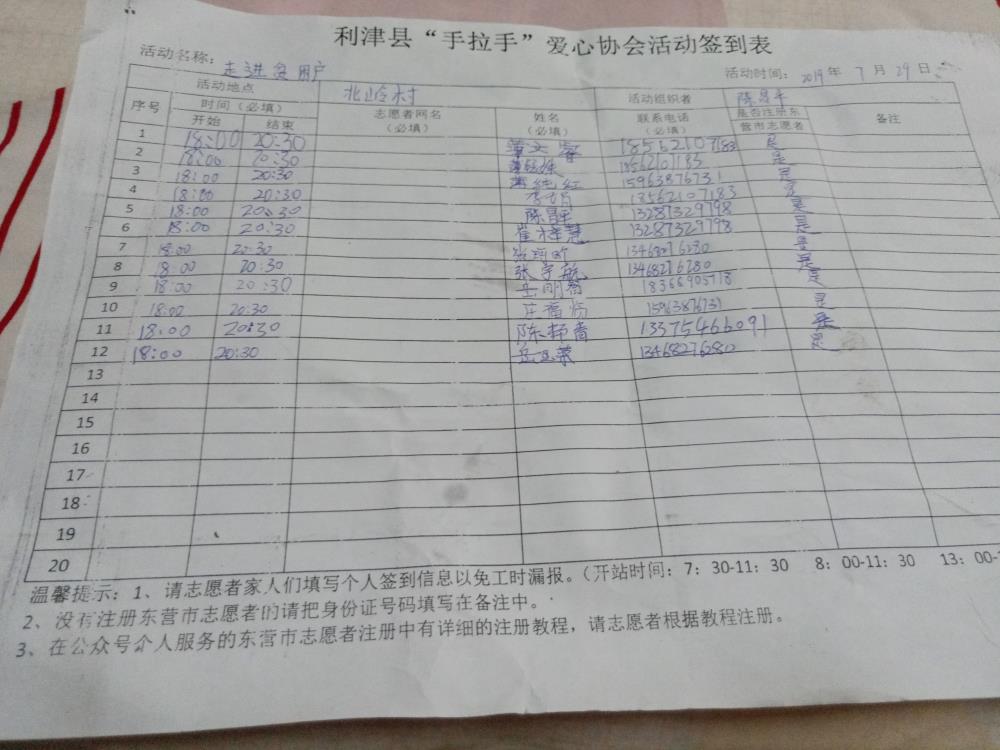 利津县“手拉手”爱心协会活动签到表
活动名称：走进贫困户 活动时间：2019年7月29日
活动地点 北岭村 活动组织者 陈昌平
序号 时间（必填） 志愿者网名（必填） 姓名（必填） 联系电话（必填） 是否注册东营市志愿者 备注
开始 结束
1 18:00 20:30 18562107183 是
2 18:00 20:30 是
3 18:00 20:30 15963876731 是
4 18:00 20:30 18562107183 是
5 18:00 20:30 陈昌平 13287329798 是
6 18:00 20:30 崔桂慧 13287329798 是
7 18:00 20:30 13468276280 是
8 18:00 20:30 张宇航 13468276280 是
9 18:00 20:30 18366905718 是
10 18:00 20:30 15963876731 是
11 18:00 20:30 13375466091 是
12 18:00 20:30 13468276280 是
13
14
15
16
17
18
19
20
温馨提示：1、请志愿者家人们填写个人签到信息以免工时漏报。（开站时间：7：30-11：30 8：00-11：30 13：00-
2、没有注册东营市志愿者的请把身份证号码填写在备注中。
3、在公众号个人服务的东营市志愿者注册中有详细的注册教程，请志愿者根据教程注册。